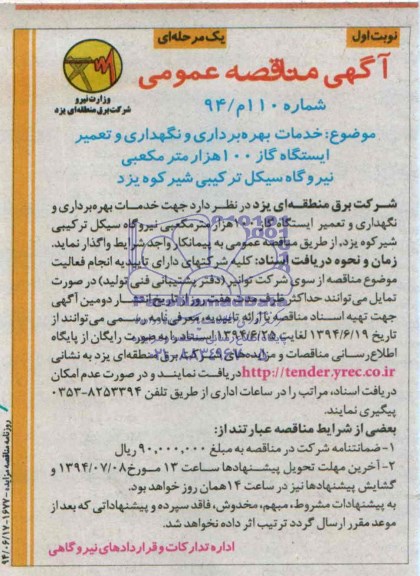 نوبت اول
یک مرحله‌ای
آگهی مناقصه عمومی
وزارت نیرو
شرکت برق منطقه‌ای یزد
شماره ۱۱۰م/۹۴
موضوع: خدمات بهره‌برداری و نگهداری و تعمیر
ایستگاه گاز ۱۰۰هزار متر مکعبی
نیروگاه سیکل ترکیبی شیرکوه یزد
شرکت برق منطقه‌ای یزد در نظر دارد جهت خدمات بهره‌برداری و
نگهداری و تعمیر ایستگاه گاز ۱۰۰هزار مترمکعبی نیروگاه سیکل ترکیبی
شیرکوه یزد، از طریق مناقصه عمومی به پیمانکار واجد شرایط واگذار نماید.
زمان و نحوه دریافت اسناد: کلیه شرکتهای دارای تأییدیه انجام فعالیت
موضوع مناقصه از سوی شرکت توانیر (دفتر پشتیبانی فنی تولید) در صورت
تمایل می‌توانند حداکثر ظرف مدت هفت روز از تاریخ انتشار دومین آگهی
جهت تهیه اسناد مناقصه با ارائه تاییدیه، معرفی‌نامه رسمی می‌توانند از
تاریخ ۱۳۹۴/۶/۱۹ لغایت ۱۳۹۴/۶/۲۵ اسناد را به صورت رایگان از پایگاه
اطلاع‌رسانی مناقصات و مزایده‌های شرکت برق منطقه‌ای یزد به نشانی
http://tender.yrec.co.ir دریافت نمایند و در صورت عدم امکان
دریافت اسناد، مراتب را در ساعات اداری از طریق تلفن ۸۲۵۳۳۹۴-۰۳۵۳
پیگیری نمایند.
بعضی از شرایط مناقصه عبارتند از:
۱- ضمانتنامه شرکت در مناقصه به مبلغ ۹۰,۰۰۰,۰۰۰ ریال
۲- آخرین مهلت تحویل پیشنهادها ساعت ۱۳ مورخ ۱۳۹۴/۰۷/۰۸ و
گشایش پیشنهادها نیز در ساعت ۱۴همان روز خواهد بود.
به پیشنهادات مشروط، مبهم، مخدوش، فاقد سپرده و پیشنهاداتی که بعد از
موعد مقرر ارسال گردد ترتیب اثر داده نخواهد شد.
اداره تدارکات و قراردادهای نیروگاهی
روزنامه مناقصه مزایده - ۱۶۷۷ - ۹۴/۰۶/۱۷